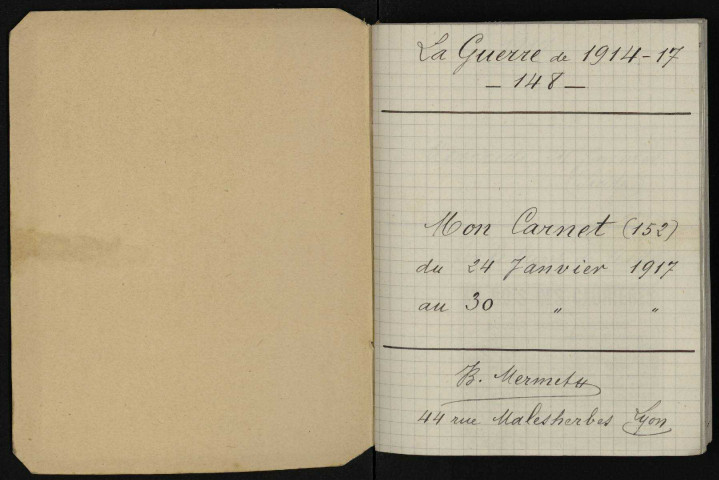 La Guerre de 1914-17
- 148 -
Mon Carnet (152)
du 24 Janvier 1917
au 30 " "
B. Mermet
44 rue Malesherbes Lyon